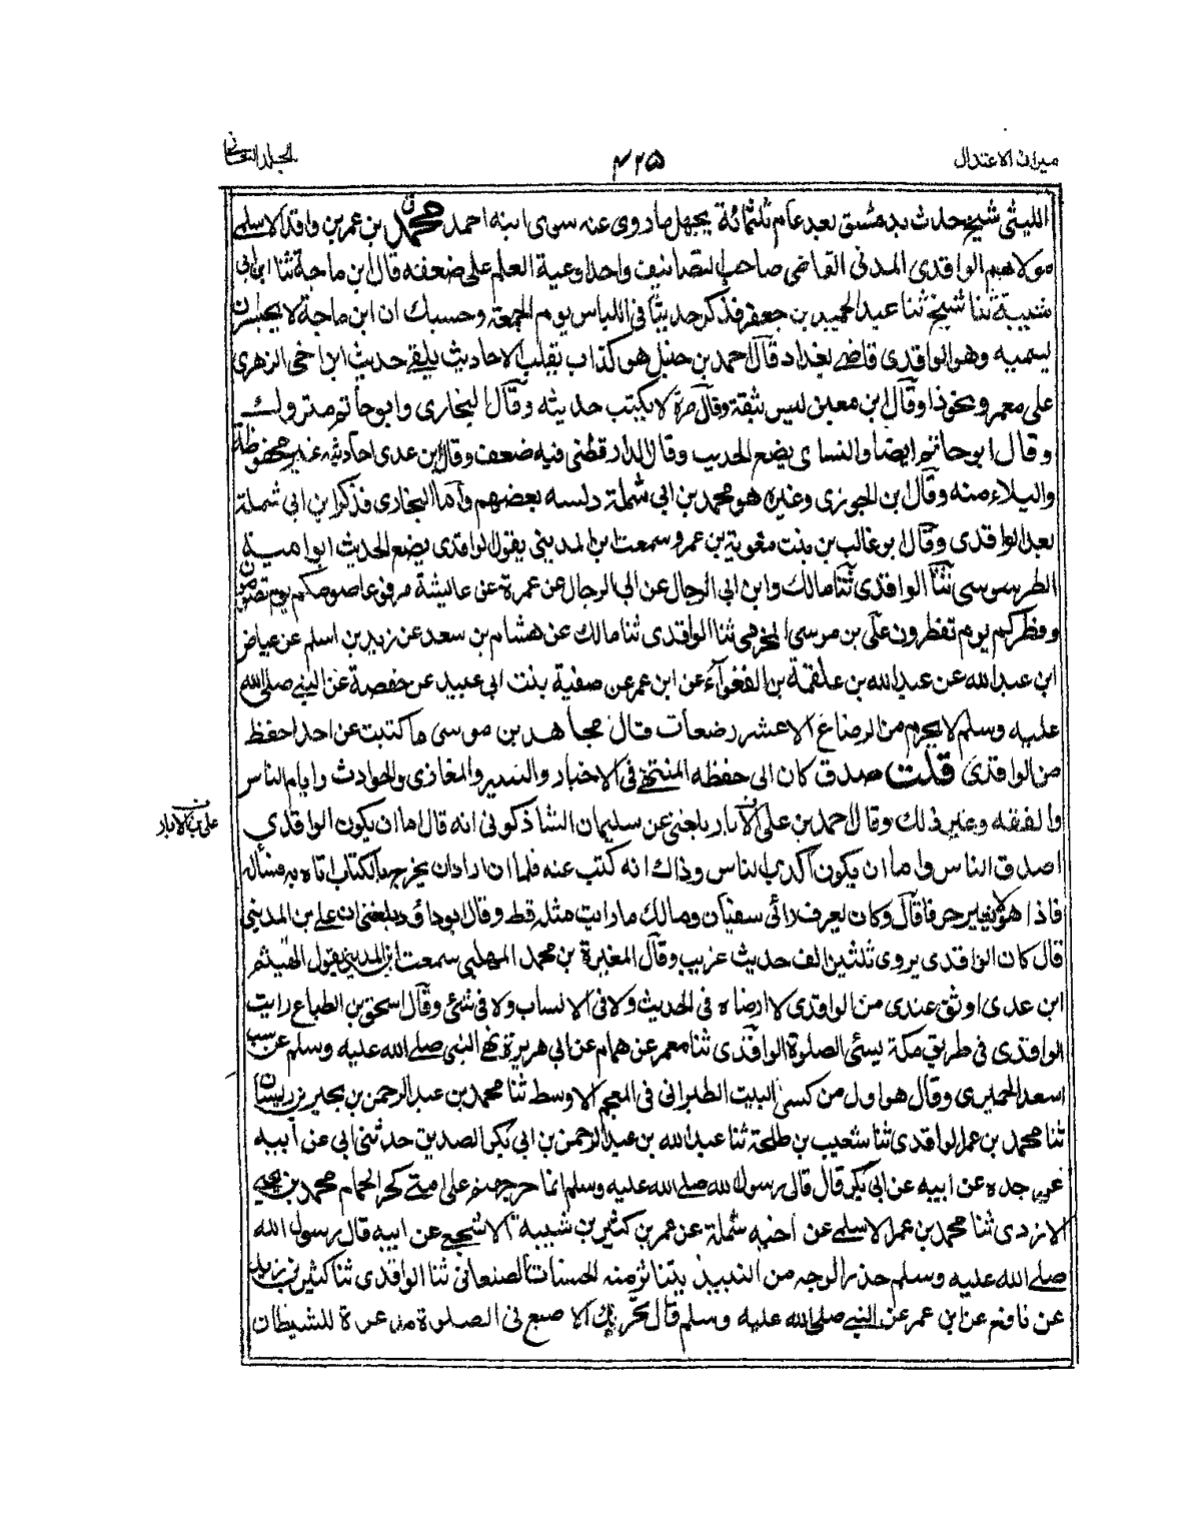 ميزان الاعتدال
٤٢٥
الجلد الثاني
الليثى شيخ حدث بدمشق بعد عام ثلثمائة يجهل ما روى عنه سوى ابنه احمد محمد بن عمر بن واقد الاسلمى
مولاهم الواقدى المدنى القاضى صاحب التصانيف واحد اوعية العلم على ضعفه قال ابن ماجة ثنا ابن ابى
شيبة ثنا شيخ ثنا عبد الحميد بن جعفر فذكر حديثا فى اللباس يوم الجمعة وحسبك ان ابن ماجة لا يجسر ان
يسميه وهو الواقدى قاضى بغداد قال احمد بن حنبل هو كذاب يقلب الاحاديث يلقى حديث ابن اخى الزهرى
على معمر ونحو ذا وقال ابن معين ليس بثقة وقال مرة لا يكتب حديثه وقال البخارى وابو حاتم متروك
وقال ابو حاتم ايضا والنسائ يضع الحديث وقال الدارقطنى فيه ضعف وقال ابن عدى احاديثه غير محفوظة
والبلاء منه وقال ابن الجوزى وغيره هو محمد بن ابى شملة دلسه بعضهم واما البخارى فذكر ابن ابى شملة
بعد الواقدى وقال ابو غالب بن بنت معوية بن عمرو سمعت ابن المدينى يقول الواقدى يضع الحديث ابو امية
الطرسوسى ثنا الواقدى ثنا مالك وابن ابى الرجال عن ابى الرجال عن عمرة عن عائشة مرفوعا صومكم يوم تصومون
وفطركم يوم تفطرون على بن موسى المخرمى ثنا الواقدى ثنا مالك عن هشام بن سعد عن زيد بن اسلم عن عياض
ابن عبد الله عن عبد الله بن علقمة بن الفغوآء عن ابن عمر عن صفية بنت ابى عبيد عن حفصة عن النبى صلى الله
عليه وسلم لا يحرم من الرضاع الا عشر رضعات وقال مجاهد بن موسى ما كتبت عن احد احفظ
من الواقدى قلت صدق كان الى حفظه المنتهى فى الاخبار والسير والمغازى والحوادث وايام الناس
والفقه وغير ذلك وقال احمد بن على الابار بلغنى عن سليمان الشاذكونى انه قال اما ان يكون الواقدى
على بن الابار
اصدق الناس واما ان يكون اكذب الناس وذاك انه كتب عنه فلما ان اراد ان يخرج بالكتاب اتاه به فسأله
فاذا هو لا يغير حرفا قال وكان يعرف رائى سفيان ومالك ما رايت مثله قط وقال ابو داؤد بلغنى ان على بن المدينى
قال كان الواقدى يروى ثلثين الف حديث غريب وقال المغيرة بن محمد المهلبى سمعت ابن المدينى يقول الهيثم
ابن عدى اوثق عندى من الواقدى لا ارضاه فى الحديث ولا فى الانساب ولا فى شئ وقال اسحق بن الطباع رايت
الواقدى فى طريق مكة يسئى الصلوة الواقدى ثنا معمر عن همام عن ابى هريرة نهى النبى صلى الله عليه وسلم عن سب
اسعد الحميرى وقال هو اول من كسى البيت الطبرانى فى المعجم الاوسط ثنا محمد بن عبد الرحمن بن بحير بن ريسان
ثنا محمد بن عمر الواقدى ثنا شعيب بن طلحة ثنا عبد الله بن عبد الرحمن بن ابى بكر الصديق حدثنى ابى عن ابيه
عن جده عن ابيه عن ابى بكر قال قال رسول الله صلى الله عليه وسلم انما حر جهنم على امتى كحر الحمام محمد بن يحيى
الازدى ثنا محمد بن عمر الاسلمى عن اخيه شملة عن عمر بن كثير بن شيبة الاشجعى عن ابيه قال رسول الله
صلى الله عليه وسلم خدر الوجه من النبيذ يتناثر منه الحسنات الصنعانى ثنا الواقدى ثنا كثير بن زيد
عن نافع عن ابن عمر عن النبى صلى الله عليه وسلم قال تحريك الاصبع فى الصلوة مذعرة للشيطان